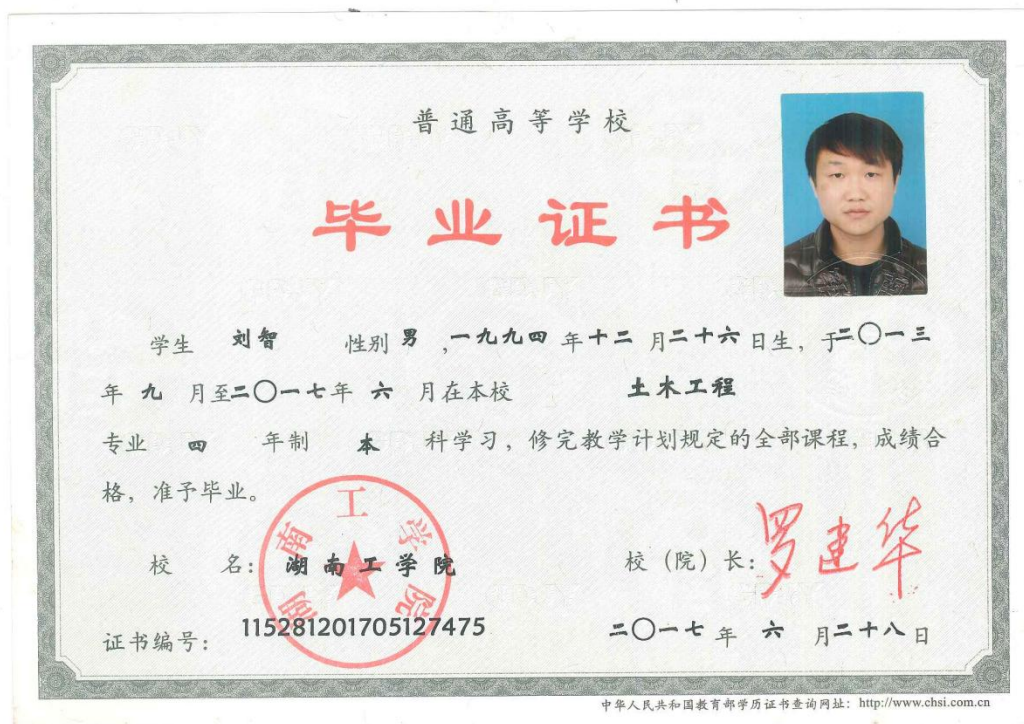 普通高等学校
毕业证书
学生 刘智 性别 男 ,一九九四 年 十二 月 二十六 日生，于二〇一三
年 九 月至二〇一七年 六 月在本校 土木工程
专业 四 年制 本 科学习，修完教学计划规定的全部课程，成绩合
格，准予毕业。
校 名：湖南工学院
校（院）长：罗建华
湖南工学院
证书编号：115281201705127475
二〇一七 年 六 月二十八日
中华人民共和国教育部学历证书查询网址：http://www.chsi.com.cn